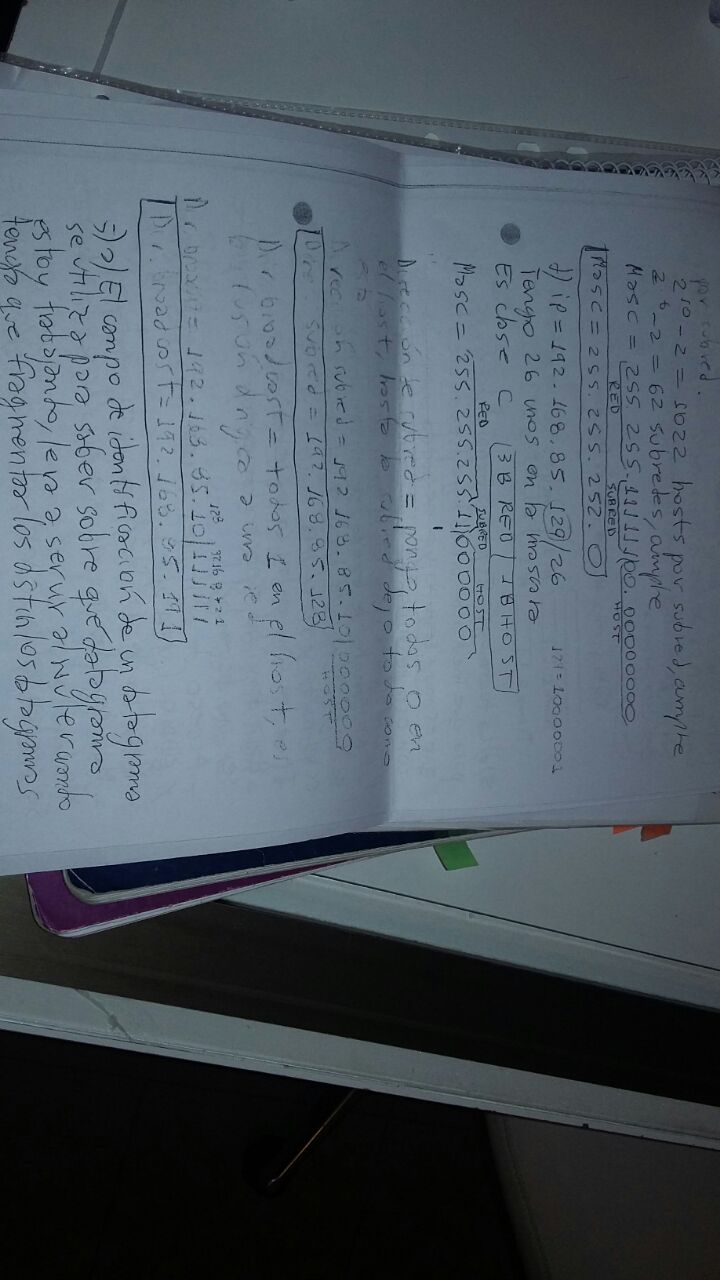 por subred.
2^10 - 2 = 1022 hosts por subred, cumple
2^6 - 2 = 62 subredes, cumple
RED SUBRED HOST
Masc = 255.255.11111100.00000000
Masc = 255.255.252.0
d) ip = 192.168.85.129/26 129=10000001
Tengo 26 unos en la mascara
Es clase C 3B RED / 1B HOST
RED SUBRED HOST
Masc = 255.255.255.11000000
Dirección de subred = pongo todos 0 en
el host, hasta la subred dejo todo como
esta
Dirección subred = 192.168.85.10|000000
HOST
Dir. subred = 192.168.85.128
Dir broadcast = todos 1 en el host, es
difusión dirigida a una red
128 32 16 8 4 2 1
Dir broadcast = 192.168.85.10|111111
Dir. broadcast = 192.168.85.191
5) a) El campo de identificación de un datagrama
se utiliza para saber sobre que datagrama
estoy trabajando, le va a servir al
tenga que fragmentar los distintos datagramas